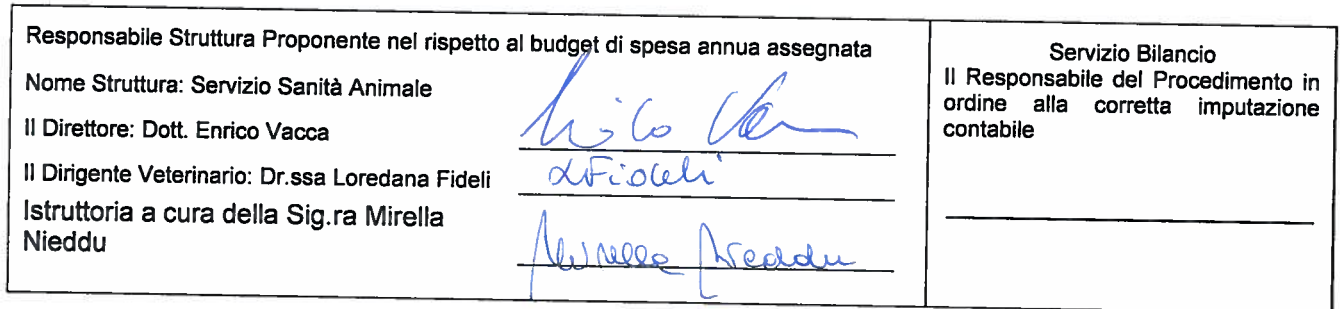 Responsabile Struttura Proponente nel rispetto al budget di spesa annua assegnata
Nome Struttura: Servizio Sanità Animale
Il Direttore: Dott. Enrico Vacca
Il Dirigente Veterinario: Dr.ssa Loredana Fideli
LFideli
Istruttoria a cura della Sig.ra Mirella
Nieddu
Mirella Nieddu
Servizio Bilancio
Il Responsabile del Procedimento in
ordine alla corretta imputazione
contabile